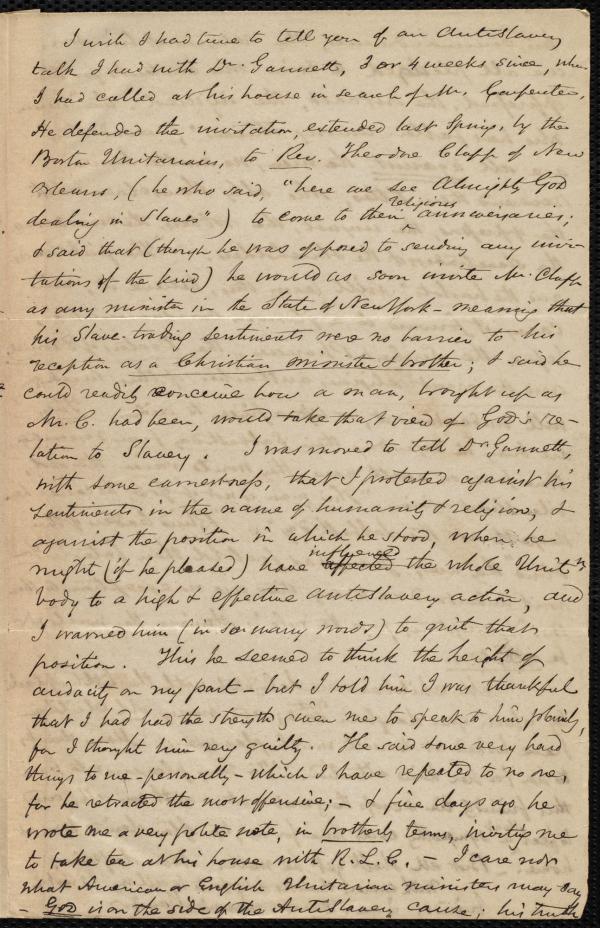 I wish I had time to tell you of an Antislavery
talk I had with Dr. Gannett, 3 or 4 weeks since, when
I had called at his house in search of Mr. Carpenter.
He defended the invitation, extended last Spring, by the
Boston Unitarians, to Rev. Theodore Clapp of New
Orleans, (he who said, "here we see Almighty God
dealing in Slaves") to come to their religious anniversaries;
& said that (though he was opposed to sending any invi-
tations of the kind) he would as soon invite Mr. Clapp
as any minister in the State of New York - meaning that
his Slave-trading sentiments were no barrier to his
reception as a Christian minister & brother; & said he
could readily conceive how a man, brought up as
Mr. C. had been, would take that view of God's re-
lation to Slavery. I was moved to tell Dr. Gannett,
with some earnestness, that I protested against his
sentiments in the name of humanity & religion, &
against the position in which he stood, when he
might (if he pleased) have affected influenced the whole Unitn
body to a high & effective antislavery action, and
I warned him (in so many words) to quit that
position. This he seemed to think the height of
audacity on my part - but I told him I was thankful
that I had had the strength given me to speak to him plainly,
for I thought him very guilty. He said some very hard
things to me - personally - which I have repeated to no one,
for he retracted the most offensive; - & five days ago he
wrote me a very polite note, in brotherly terms, inviting me
to take tea at his house with R. L. C. - I care not
what American or English Unitarian ministers may say
- God is on the side of the Antislavery cause; his truth